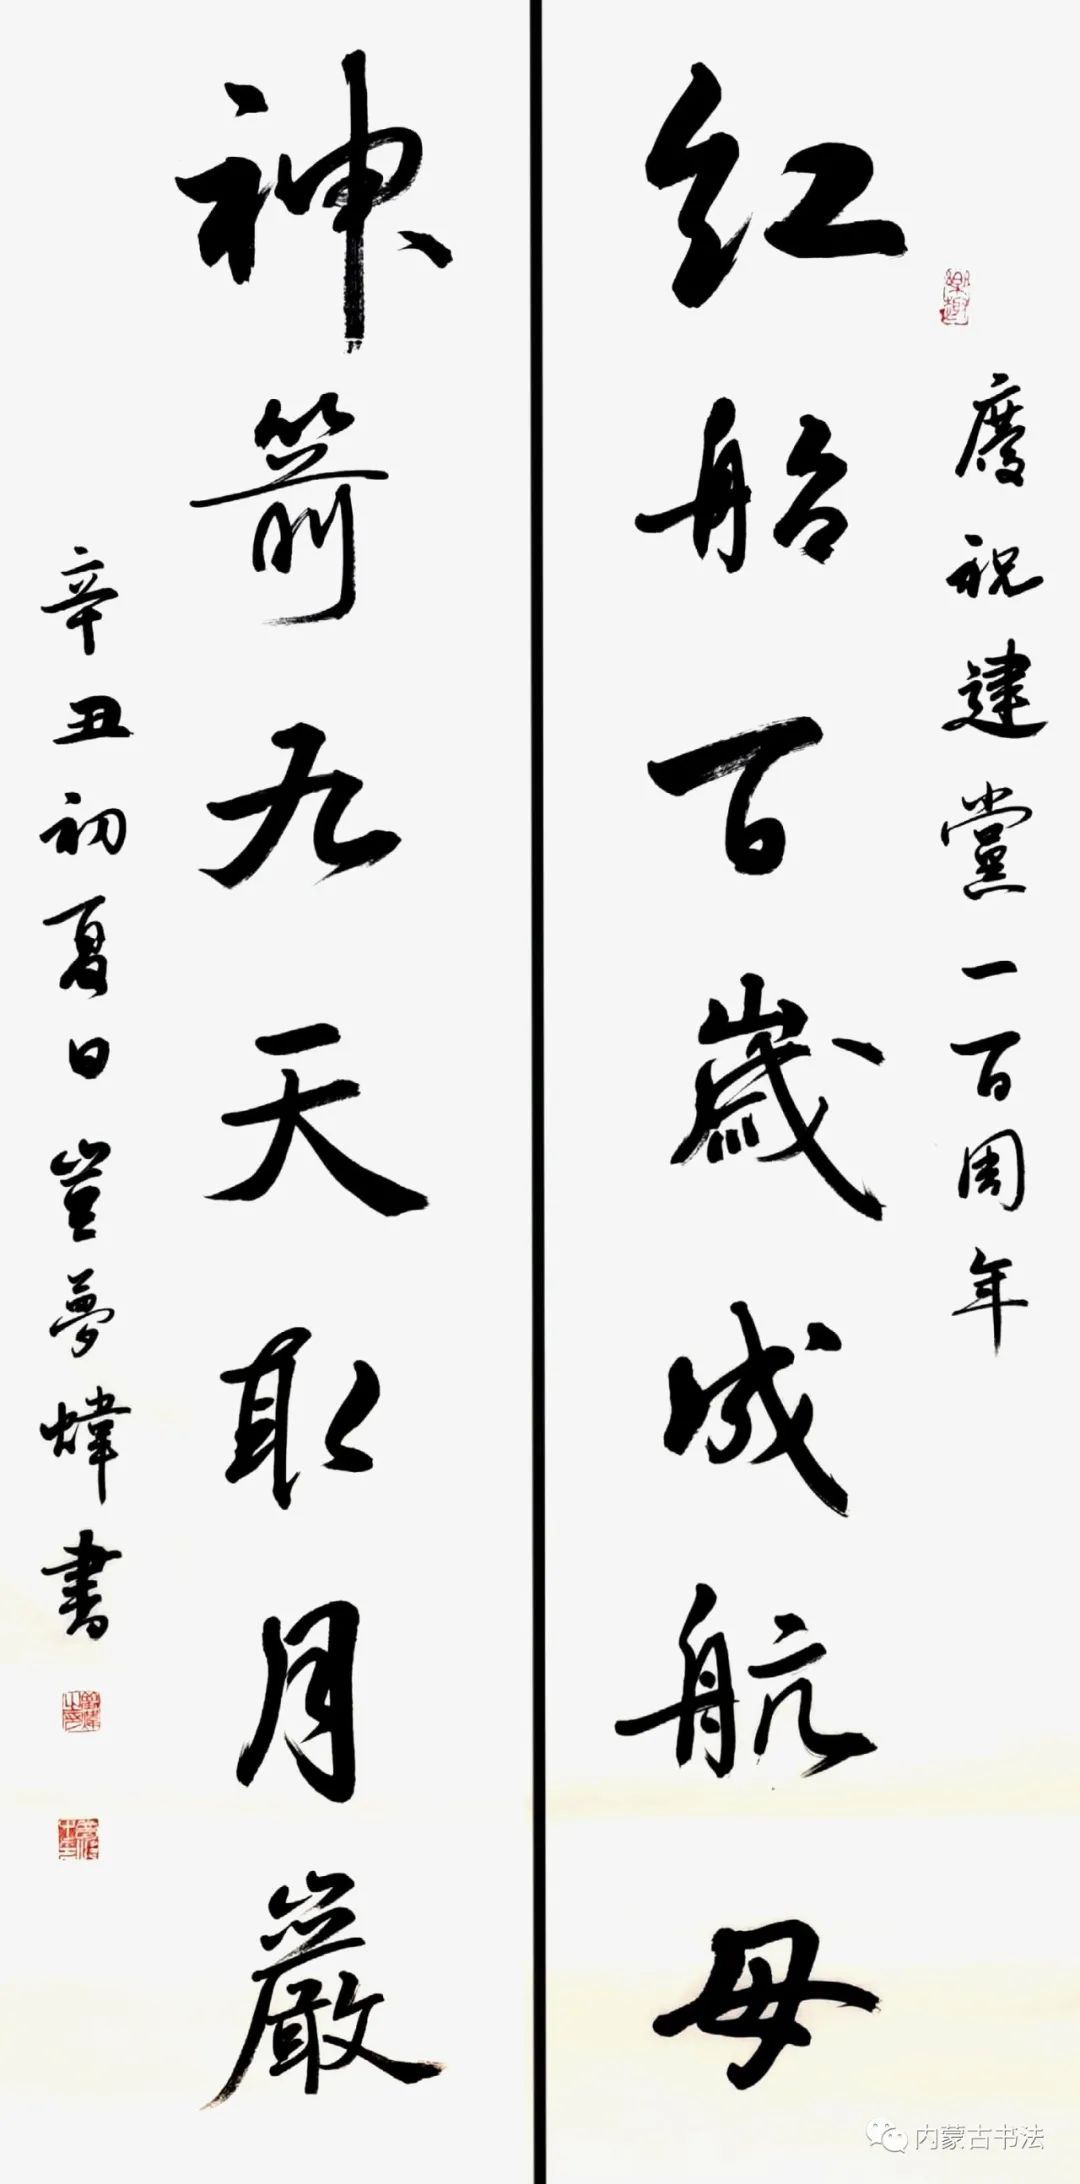 慶祝建黨一百周年
紅船百歲成航母
神箭九天取月巖
辛丑初夏日豈夢煒書
内蒙古书法